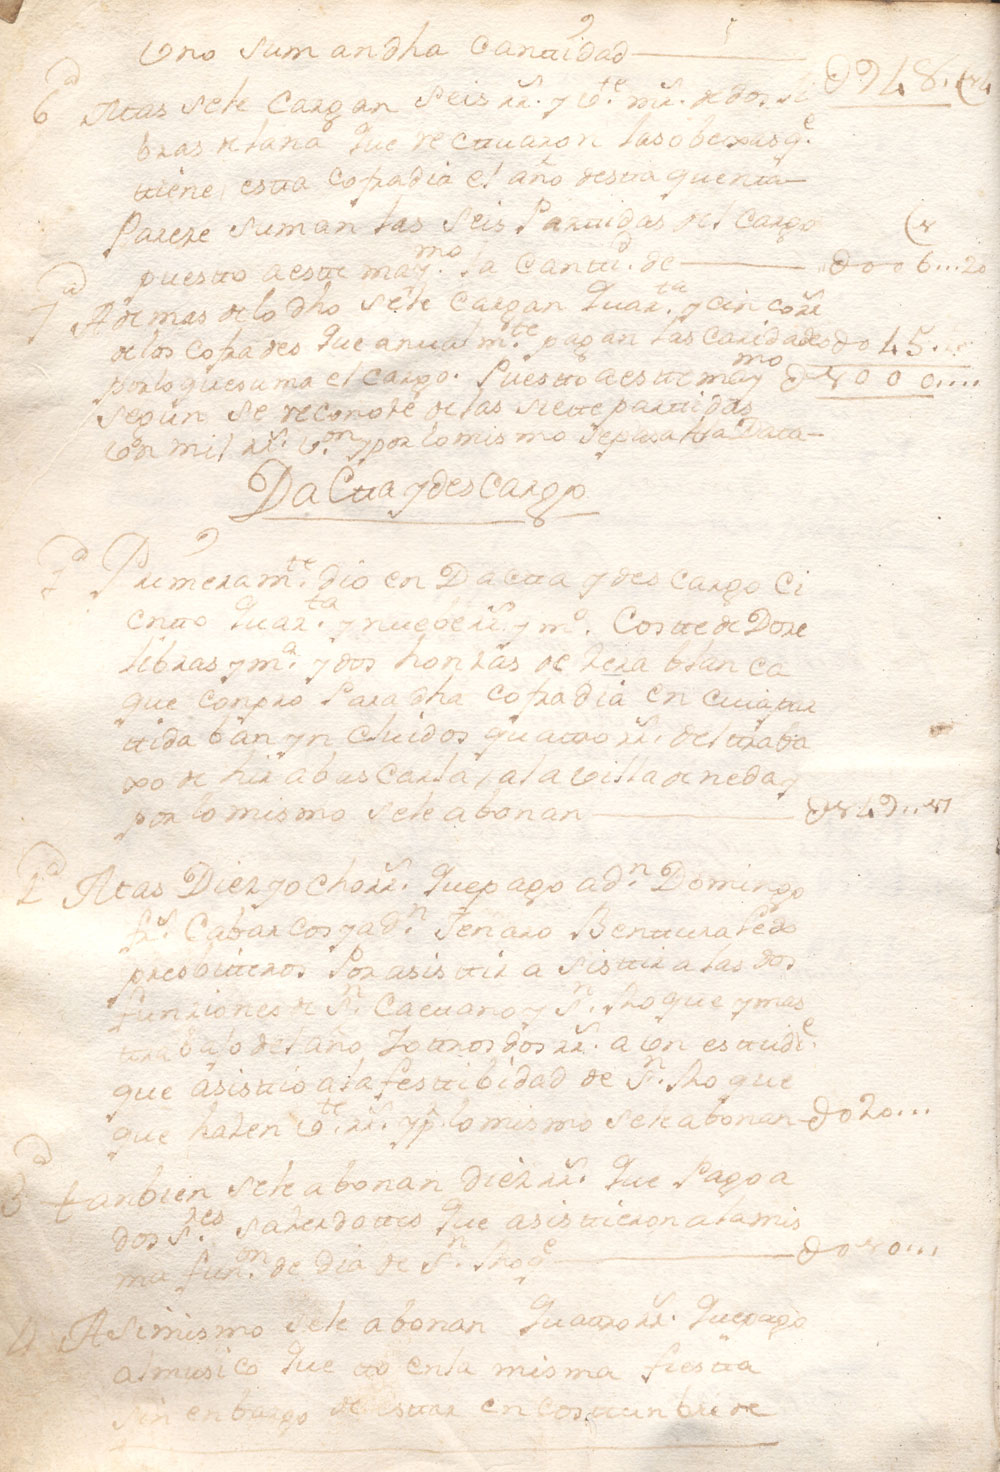 Uno suman dha Cantidad — D948..
6ª Itas se le Cargan seis rr.s y v.te mr.s de dos li
bras de lana que rectuaron las obexas q.e
ttiene estta cofradia el año desta quenta
Parese suman las seis Partidas del Cargo
puestto a estte may.mo la Cantt.d de — D006...20
7ª Ademas de lo dho se le Cargan quar.ta y cin co rr.s
de los cofrades que anualm.te pagan las Caridades D045..
por lo que suma el Cargo Puestto a estte may.mo D1000....
segun se reconose de las siette partidas
Un mil rr.s v.on y por lo mismo se pasa a la Data —
Dactta y descargo
1ª Primeram.te dio en Dactta y des cargo ci
entto quar.ta y nuebe rr.s y m.o Costte de Dose
libras y m.a y dos honzas de sera blan ca
que conpro Para dha cofradia en cuia par
ttida ban yn cluidos quattro rr.s del ttraba
xo de hir a buscarla a la villa de neda y
por lo mismo se le abonan — D149..17
2ª Itas Diez y ocho rr.s que pago a d.n Domingo
fr.s Cabarcos y a d.n Jenaro Benttura Pedo
presbitteros Por asisttir a sisttir a las dos
funziones de S.n Caettano y S.n Roque y mas
ttrabajo del año y ottros dos rr.s a un estudi.e
que asisttio a la festtibidad de S.n Roque
que hazen v.te rr.s y p.r lo mismo se le abonan D020...
3ª tanbien se le abonan diez rr.s que Pago a
dos S.res saserdottes que asisttieron a la mis
ma fun.on de dia de S.n Roq.e — D010...
4 Asimismo se le abonan quattro rr.s que pago
al musico que tto en la misma fiestta
sin enbargo de esttar en costtunbre de